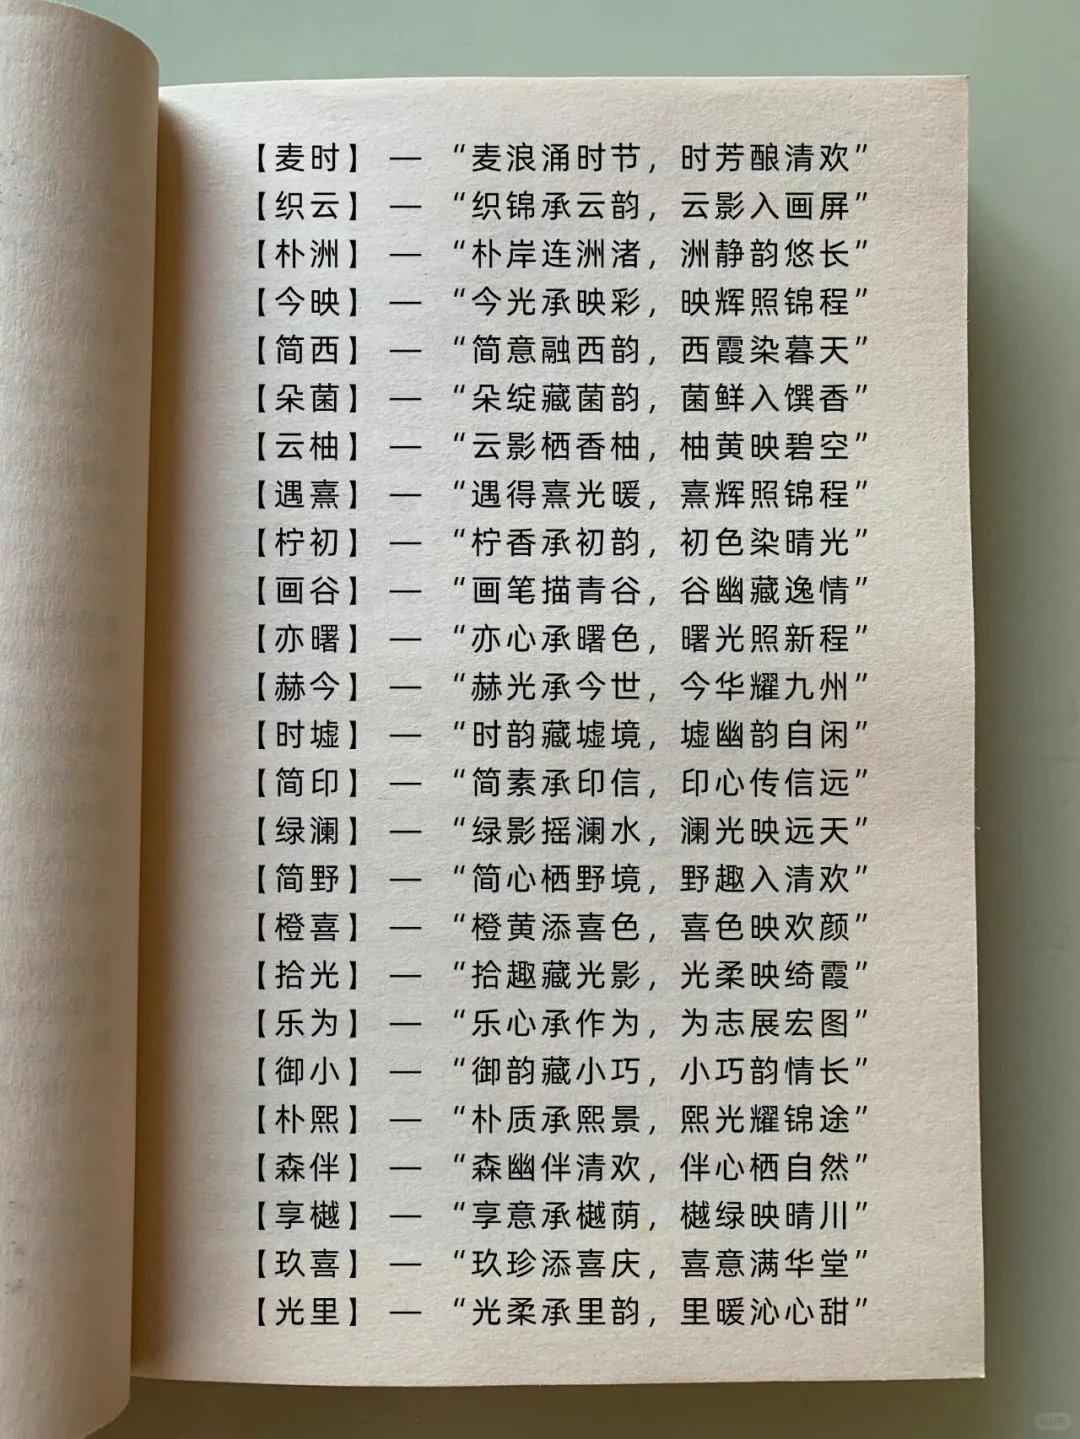 【麦时】 — “麦浪涌时节，时芳酿清欢”
【织云】 — “织锦承云韵，云影入画屏”
【朴洲】 — “朴岸连洲渚，洲静韵悠长”
【今映】 — “今光承映彩，映辉照锦程”
【简西】 — “简意融西韵，西霞染暮天”
【朵菌】 — “朵绽藏菌韵，菌鲜入馔香”
【云柚】 — “云影栖香柚，柚黄映碧空”
【遇熹】 — “遇得熹光暖，熹辉照锦程”
【柠初】 — “柠香承初韵，初色染晴光”
【画谷】 — “画笔描青谷，谷幽藏逸情”
【亦曙】 — “亦心承曙色，曙光照新程”
【赫今】 — “赫光承今世，今华耀九州”
【时墟】 — “时韵藏墟境，墟幽韵自闲”
【简印】 — “简素承印信，印心传信远”
【绿澜】 — “绿影摇澜水，澜光映远天”
【简野】 — “简心栖野境，野趣入清欢”
【橙喜】 — “橙黄添喜色，喜色映欢颜”
【拾光】 — “拾趣藏光影，光柔映绮霞”
【乐为】 — “乐心承作为，为志展宏图”
【御小】 — “御韵藏小巧，小巧韵情长”
【朴熙】 — “朴质承熙景，熙光耀锦途”
【森伴】 — “森幽伴清欢，伴心栖自然”
【享樾】 — “享意承樾荫，樾绿映晴川”
【玖喜】 — “玖珍添喜庆，喜意满华堂”
【光里】 — “光柔承里韵，里暖沁心甜”